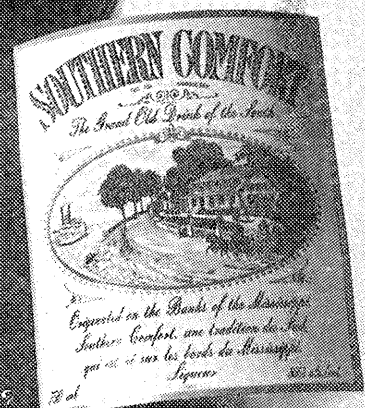 SOUTHERN COMFORT
The Grand Old Drink of the South
Originated on the Banks of the Mississippi
Southern Comfort, une tradition du Sud,
qui est né sur les bords du Mississippi.
Liqueur
750 ml